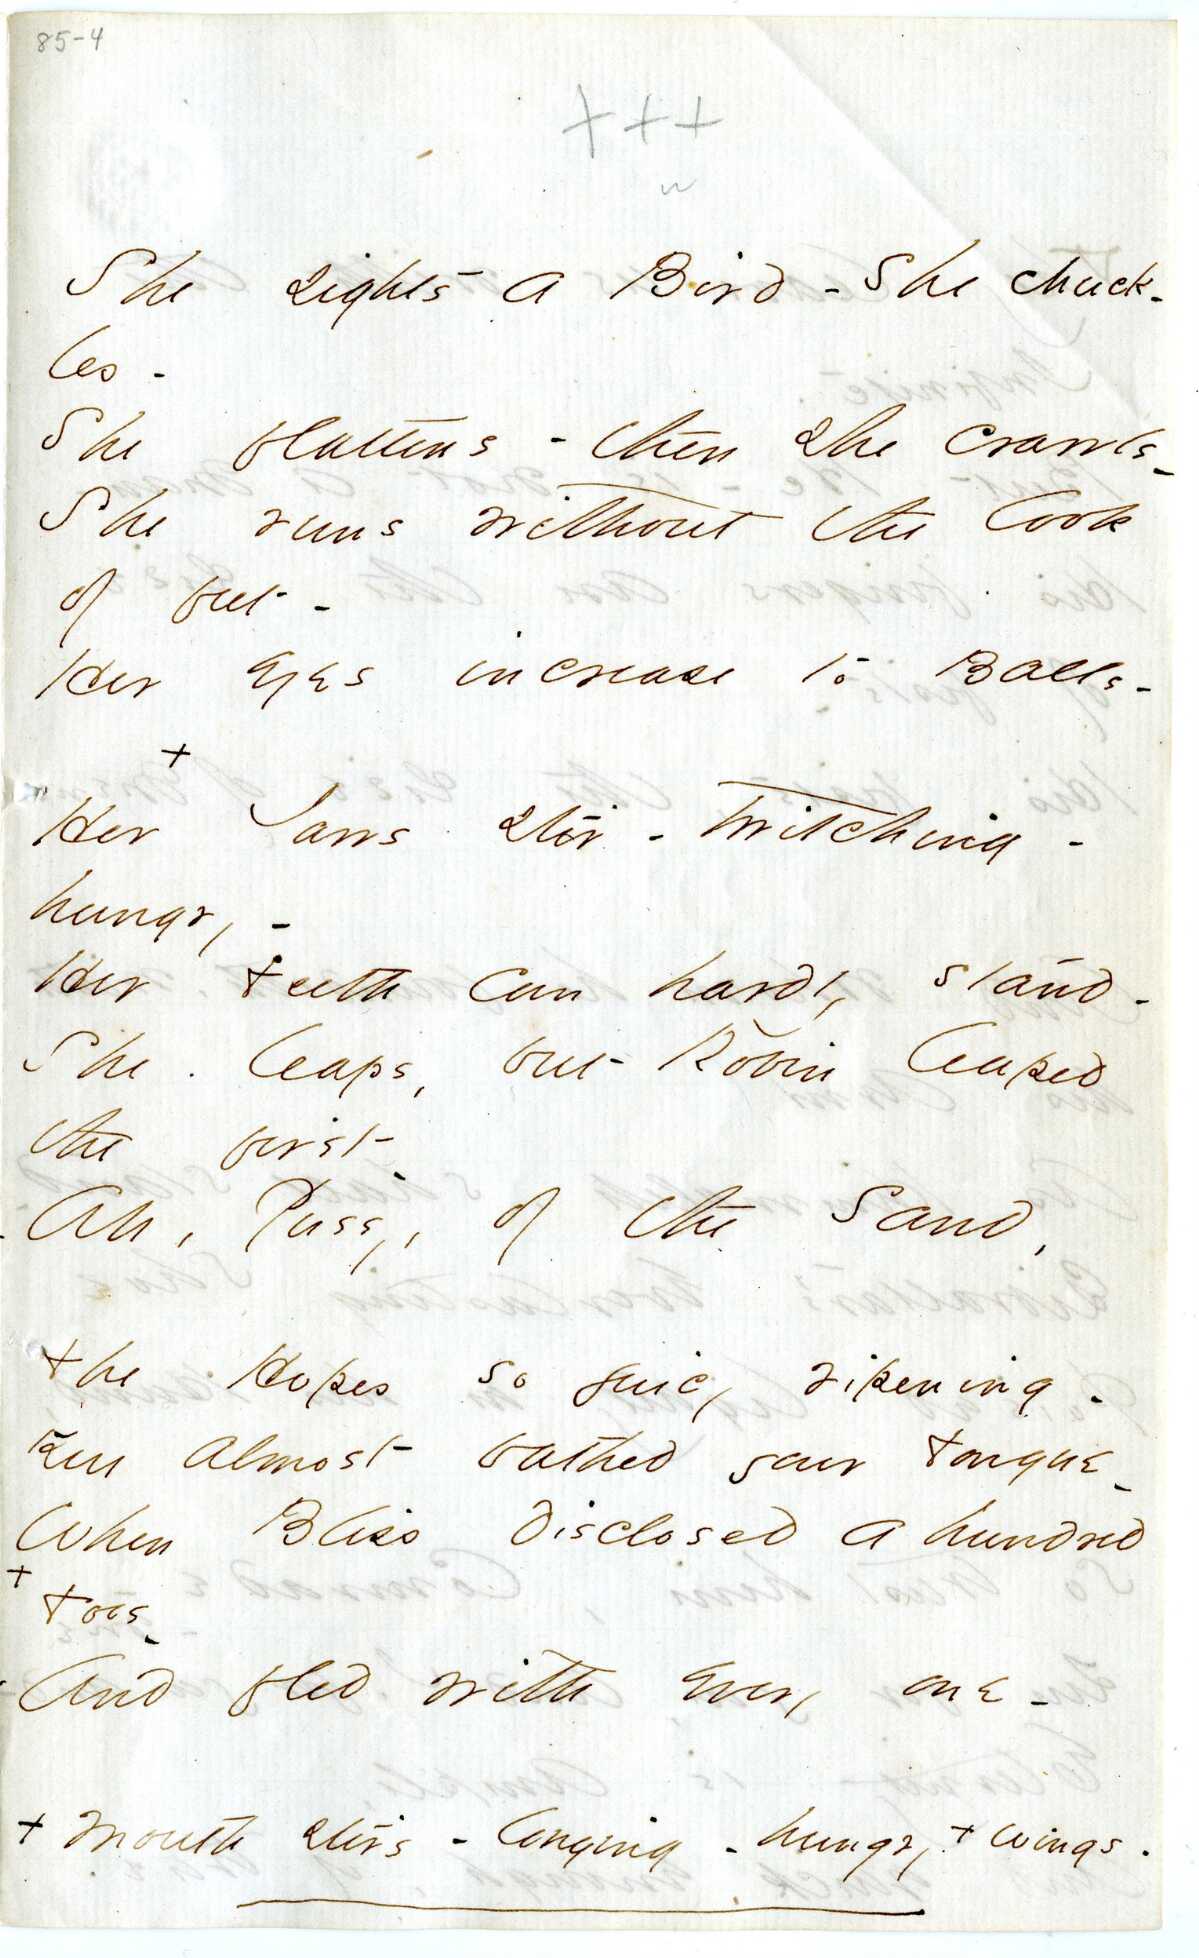 85-4
+++
She sights a Bird - She chuck-
les -
She flattens - then she crawls -
She runs without the look
of feet -
Her Eyes increase to Balls -
+
Her Jaws stir - Twitching -
hungry -
Her Teeth can hardly stand -
She leaps, but Robin leaped
the first -
Ah, Pussy, of the Sand,
The Hopes so juicy ripening -
You almost bathed your Tongue -
When Bliss disclosed a hundred
+
Toes -
And fled with Every one -
+ Mouth stirs - longing - hungry + wings -